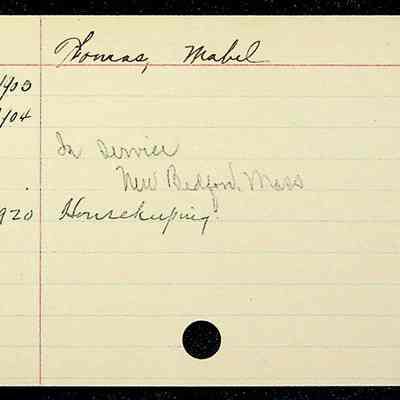 Thomas, Mabel
/03
/04
In service
New Bedford, Mass
920 Housekeeping.